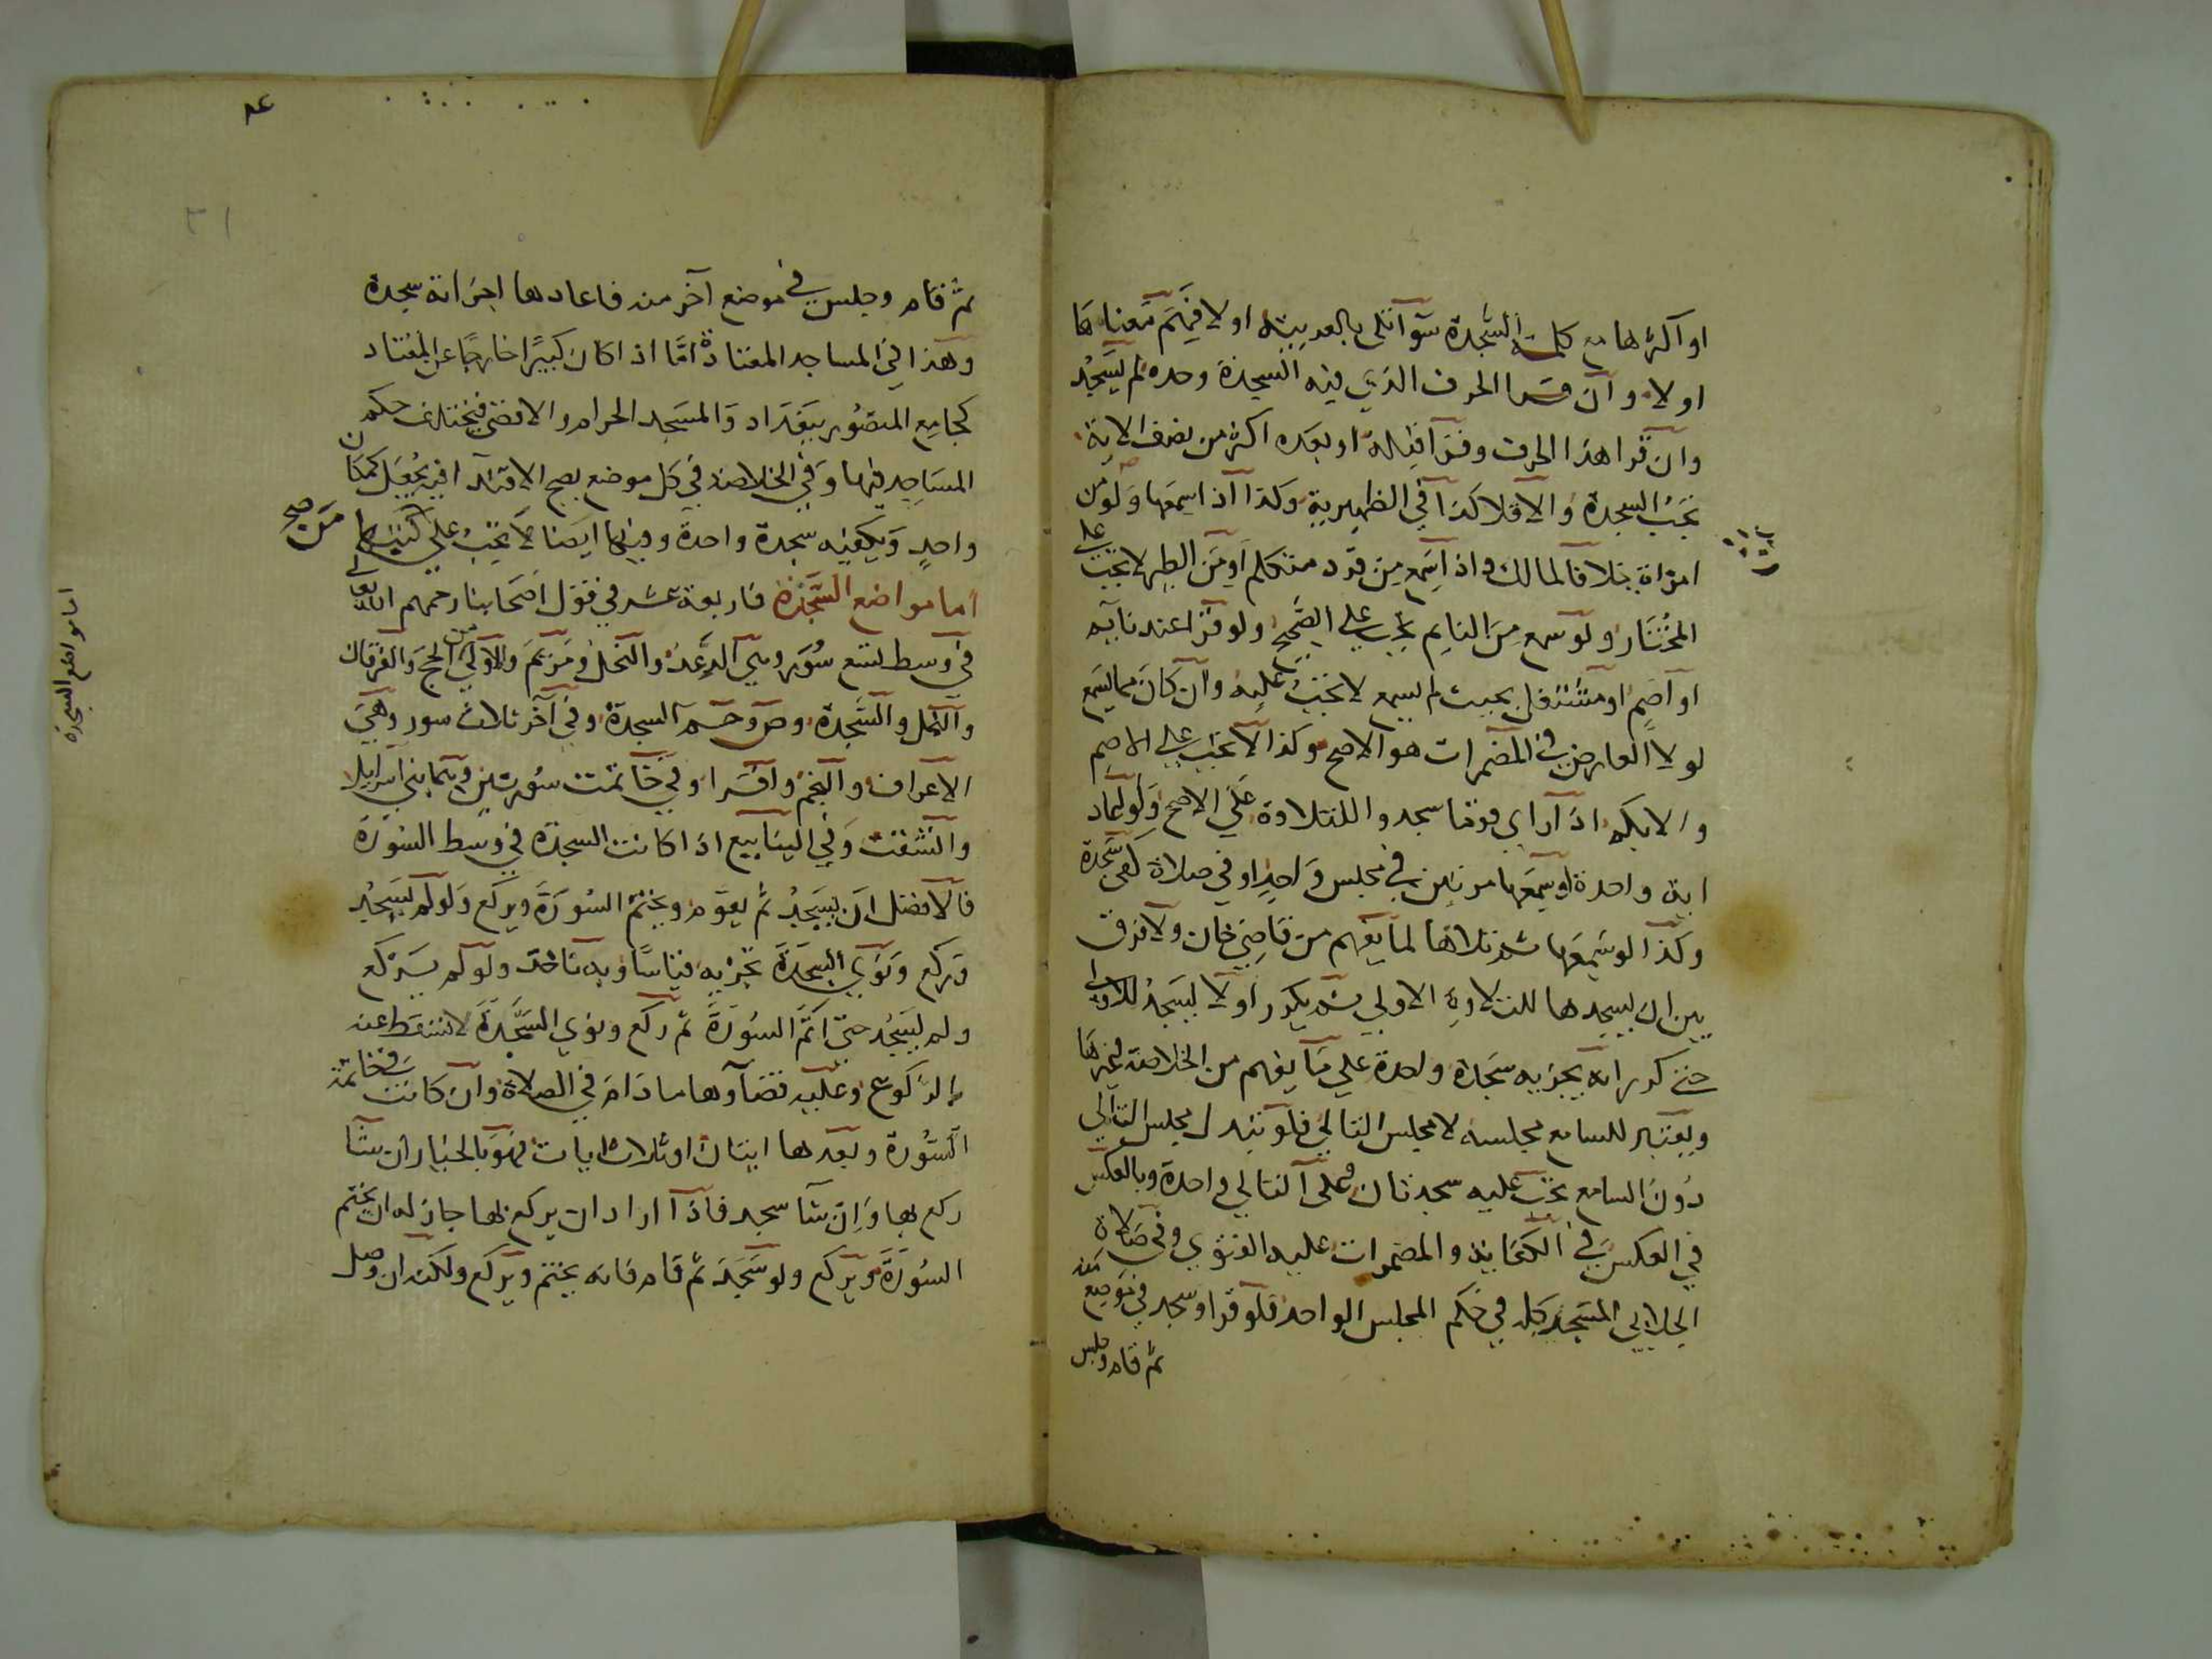 او اكثرها مع كلمة السجدة سوآ تلي بالعربية اولا فهم معناها
اولا وان قرا الحرف الذي فيه السجدة وحده لم يسجد
وان قرا هذا الحرف وقرا قبله او بعده اكثر من نصف الاية
تجب السجدة والا فلا كذا في الظهيرية وكذا اذا سمعها ولو من
امراة خلافا لمالك واذا سمع من قرد متكلم او من الطير لا تجب على
المختار ولو سمع من النايم يجب على الصحيح ولو قرا عند نايم
او اصم او متشاغل بحيث لم يسمع لا تجب عليه وان كان مما يسمع
لولا العارض في المضمرات هو الاصح وكذا لا تجب على الاصم
والابكم اذا راى قوما سجدوا للتلاوة على الاصح ولو اعاد
اية واحدة او سمعها مرتين في مجلس واحد او في صلاة كفى سجدة
وكذا لو سمعها ثم تلاها لما يفهم من قاضي خان ولا فرق
بين ان يسجدها للتلاوة الاولى ثم يكرر او لا يسجد للاولى
حتى كررانه يجزيه سجدة واحدة على ما يفهم من الخلاصة وغيرها
ويعتبر للسامع مجلسه لا مجلس التالي فلو تبدل مجلس التالي
دون السامع يجب عليه سجدتان وعلى التالي واحدة وبالعكس
في العكس في الكفاية والمضمرات عليه الفتوى وفي صلاة
الجلابي المسجد كله في حكم المجلس الواحد فلو قرا وسجد في موضع منه
ثم قام وجلس
٨٤
٣١
ثم قام وجلس في موضع آخر منه فاعادها اجزاته سجدة
وهذا في المساجد المعتادة اما اذا كان كبيرا خارجا عن المعتاد
كجامع المنصور ببغداد والمسجد الحرام والاقصى فيختلف حكم
المساجد فيها وفي الخلاصة في كل موضع يصح الاقتدآ فيه يجعل كمكان
واحد ويكفيه سجدة واحدة وفيها ايضا لا تجب على من كتبها
من صح
اما مواضع السجدة فاربعة عشر في قول اصحابنا رحمهم الله تعالى
في وسط تسع سور وهي الرعد والنحل ومريم والاولى من الحج والفرقان
والنمل والسجدة وص وحم السجدة وفي آخر ثلاث سور وهي
الاعراف والنجم واقرا وفي خاتمت سورتين وهما بني اسرايل
وانشقت وفي الينابيع اذا كانت السجدة في وسط السورة
فالافضل ان يسجد ثم يقوم ويختم السورة ويركع ولو لم يسجد
وركع ونوى السجدة تجزيه قياسا وبه ناخذ ولو لم يركع
ولم يسجد حتى اتم السورة ثم ركع ونوى السجدة لا تسقط عنه
بالركوع وعليه قضآوها ما دام في الصلاة وان كانت في خاتمة
السورة وبعدها ايتان او ثلاث ايات فهو بالخيار ان شآ
ركع بها وان شآ سجد فاذا اراد ان يركع بها جاز له ان يختم
السورة ويركع ولو سجد ثم قام فانه يختم ويركع ولكنه ان وصل
اما مواضع السجدة